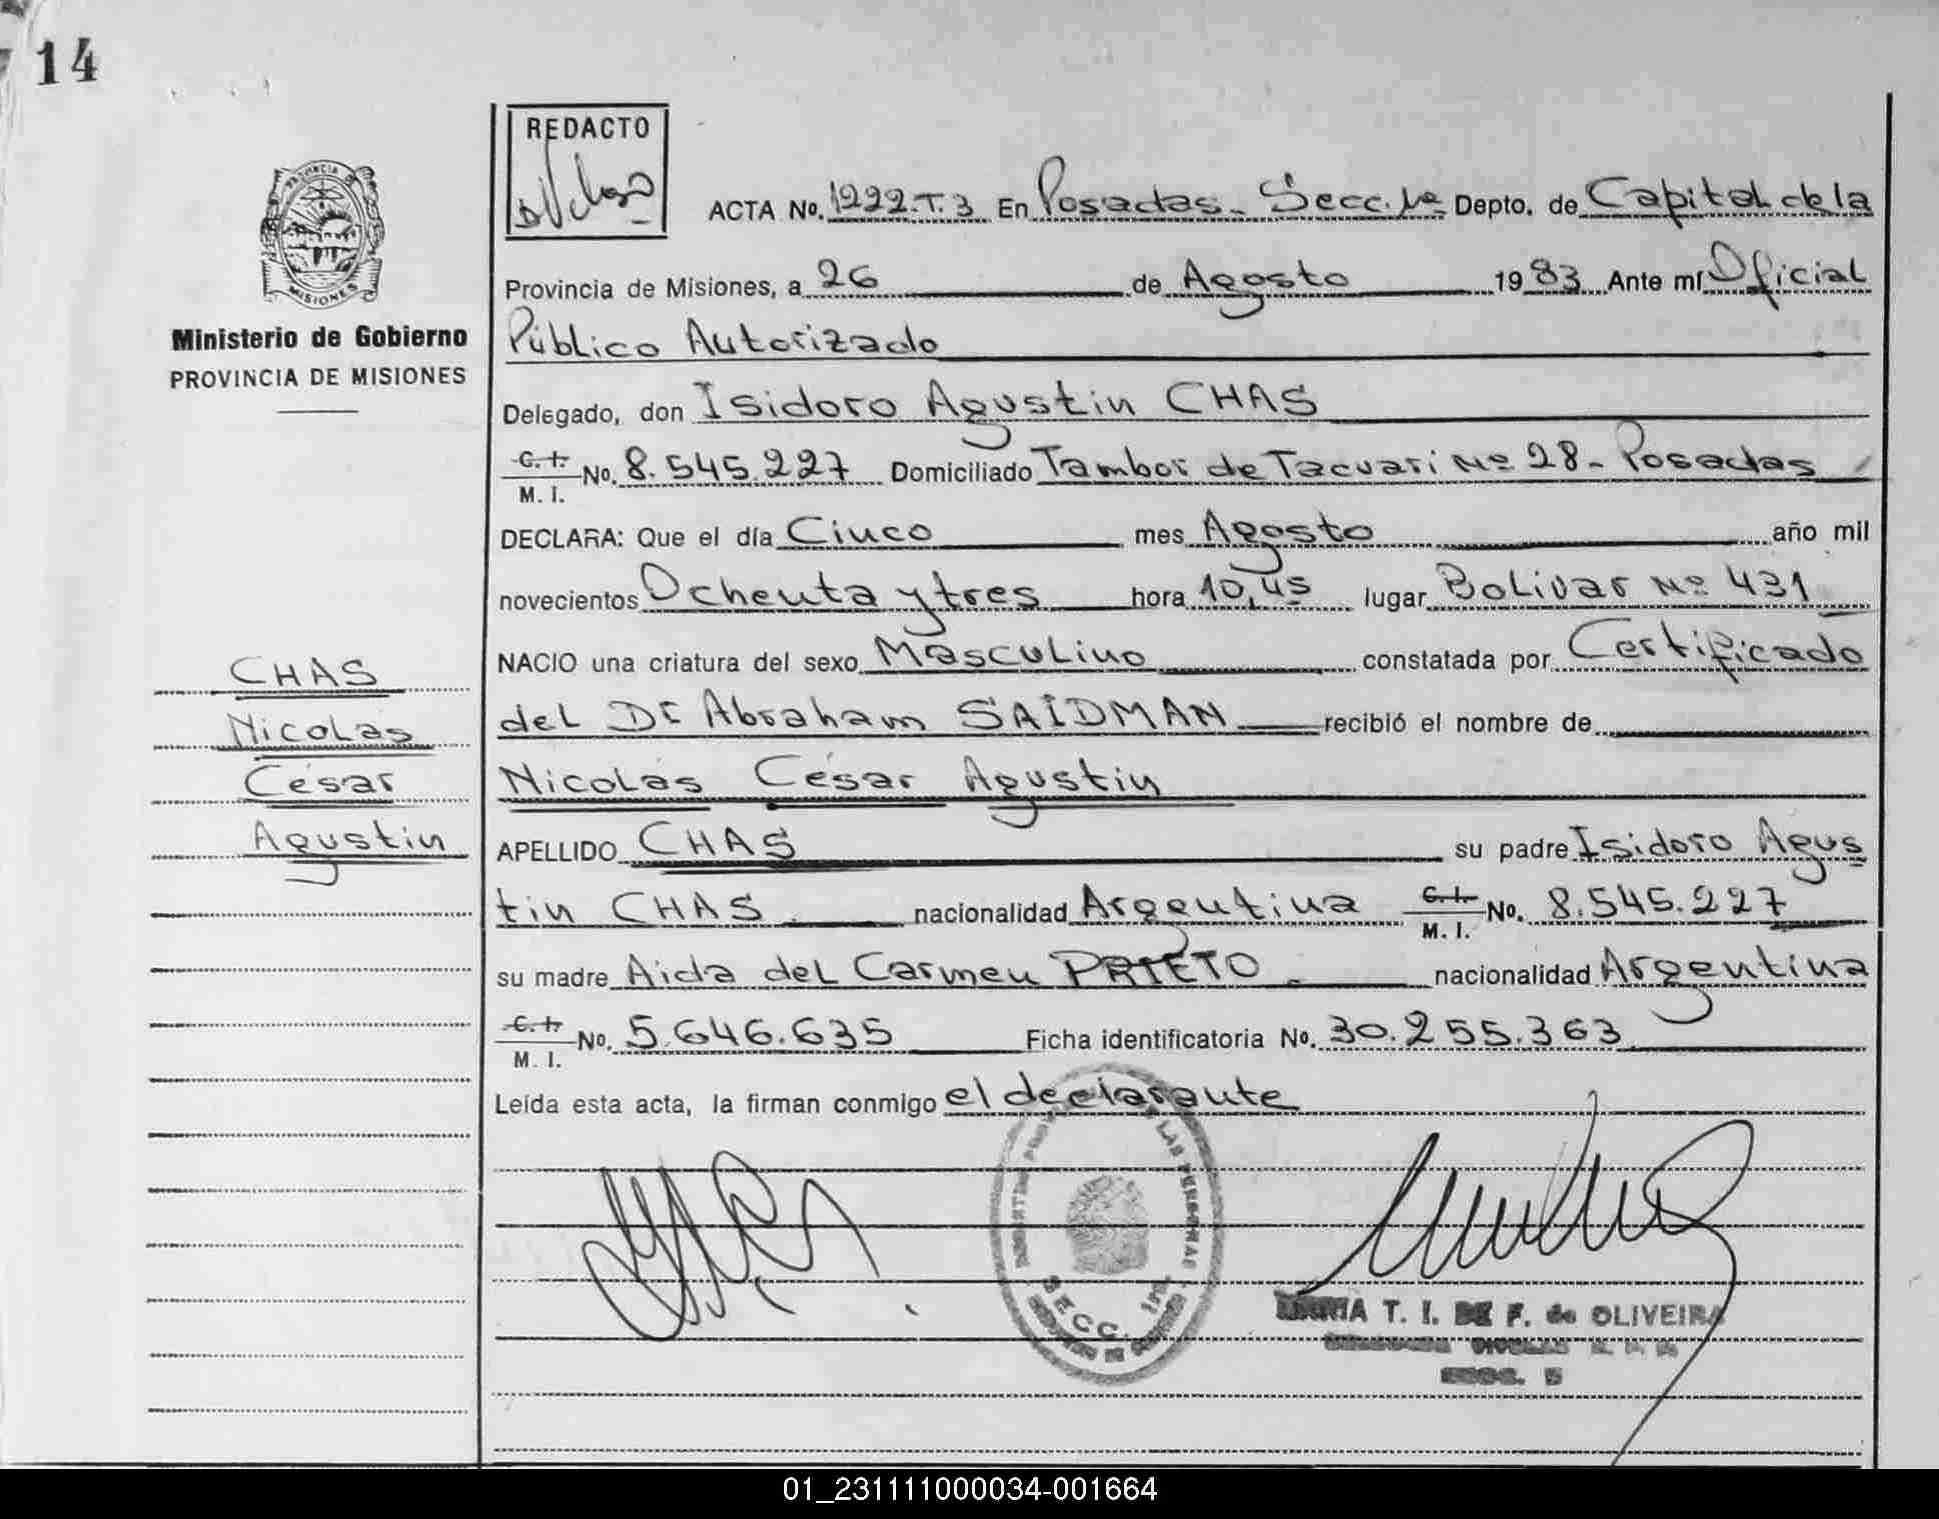 14
REDACTO
PROVINCIA DE
MISIONES
Ministerio de Gobierno
PROVINCIA DE MISIONES
ACTA No. 1222.T.3 En Posadas - Secc. 1ª Depto. de Capital de la
Provincia de Misiones, a 26 de Agosto 1983 Ante mí Oficial
Público Autorizado
Delegado, don Isidoro Agustin CHAS
C. I. M. I. No. 8.545.227 Domiciliado Tambor de Tacuari Nº 28 - Posadas
DECLARA: Que el día Cinco mes Agosto año mil
novecientos Ochenta y tres hora 10,45 lugar Bolivar Nº 431
NACIO una criatura del sexo Masculino constatada por Certificado
del Dr Abraham SAIDMAN recibió el nombre de
Nicolás César Agustin
APELLIDO CHAS su padre Isidoro Agus
tin CHAS nacionalidad Argentina C. I. M. I. No. 8.545.227
su madre Aida del Carmen PRIETO nacionalidad Argentina
C. I. M. I. No. 5.646.635 Ficha identificatoria No. 30.255.363
Leída esta acta, la firman conmigo el declarante
CHAS
Nicolás
César
Agustin
LAS PERSONAS
SECC. 1ra
T. I. DE F. de OLIVEIRA
01_231111000034-001664